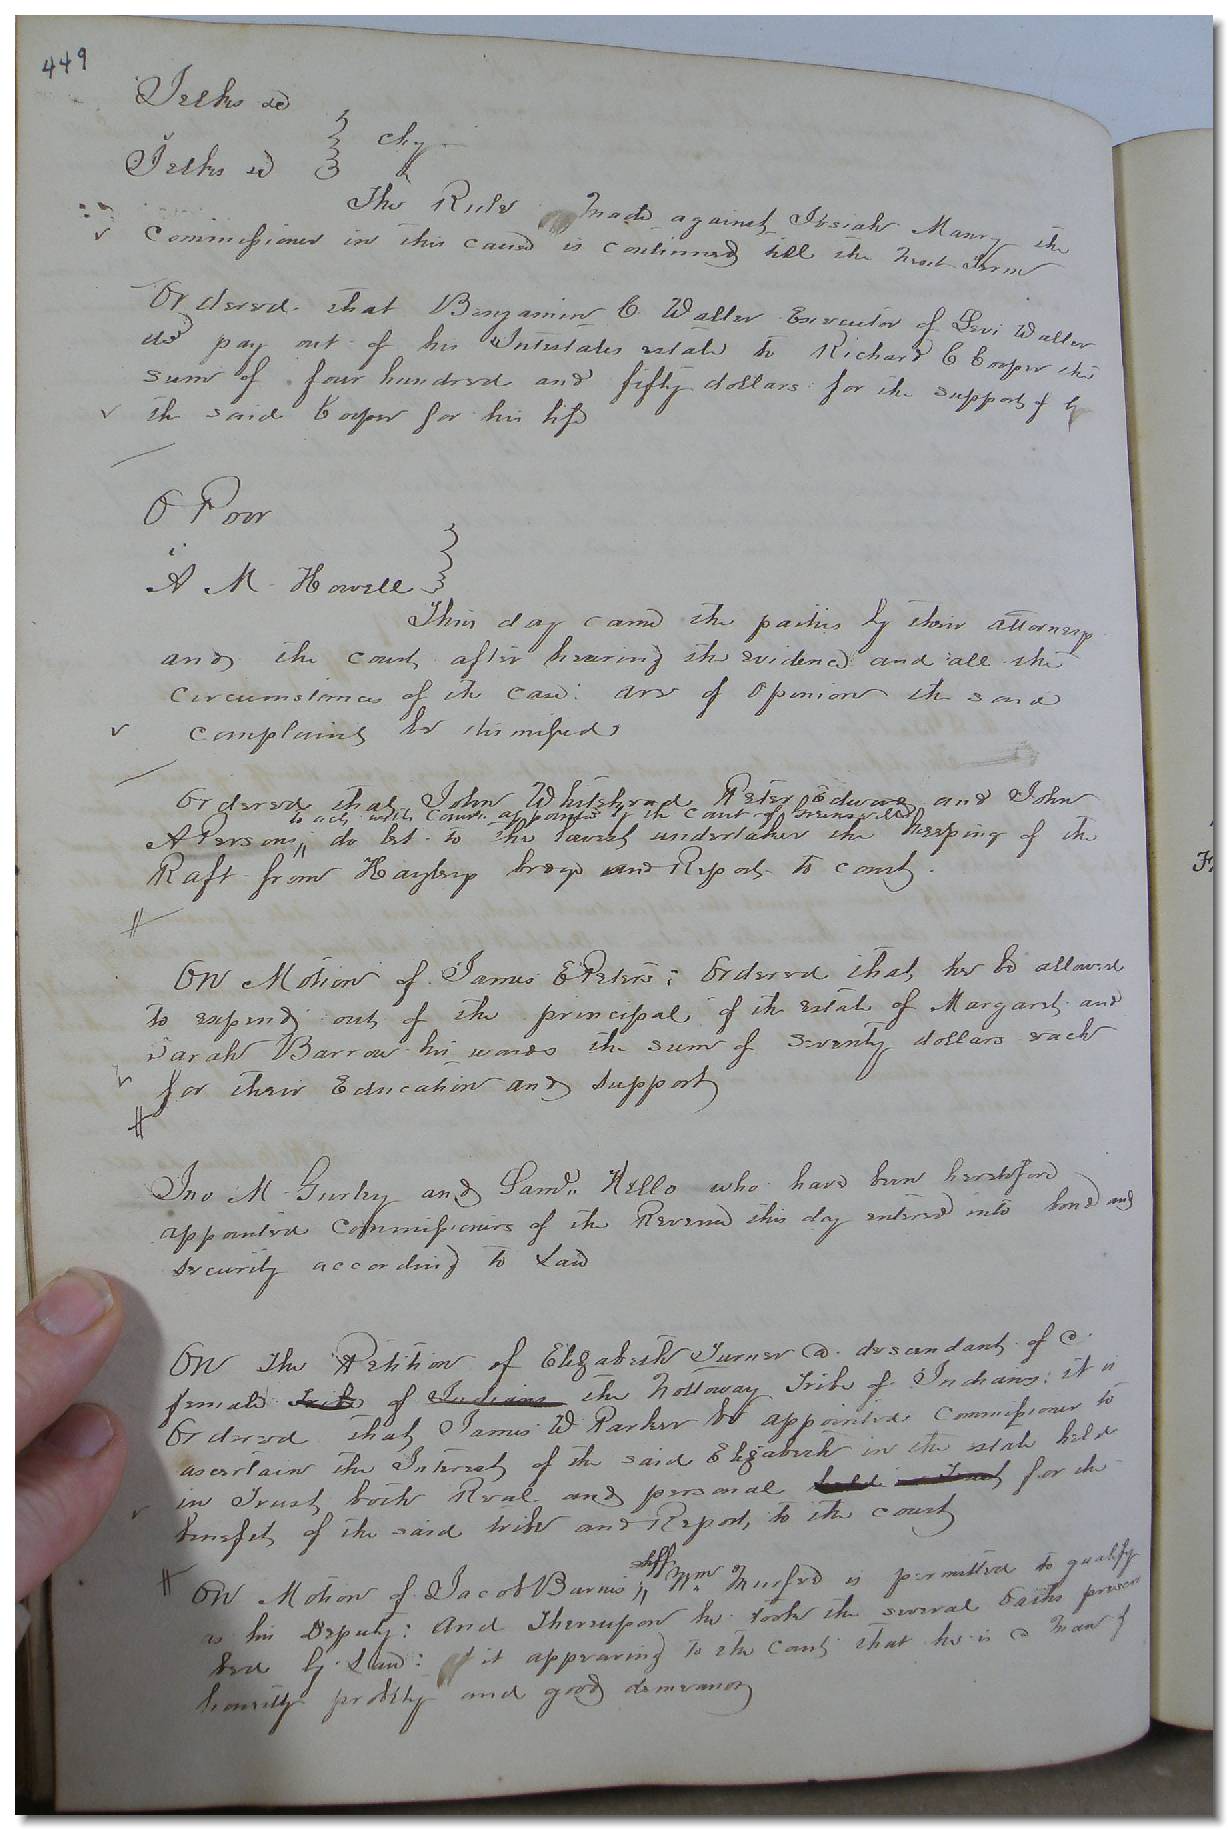 449
Jelks &c
vs } Chy
Jelks &c
The Rule made against Josiah Maury the
Commissioner in this cause is continued till the next Term
Ordered that Benjamin C Waller Executor of Levi Waller
do pay out of his Intestates estate to Richard C Cooper the
sum of four hundred and fifty dollars for the support of
the said Cooper for his life
O Poor
v
A M Howell
This day came the parties by their attorneys
and the court after hearing the evidence and all the
circumstances of the case are of opinion the said
complaint be dismissed
Ordered that John Whitehead Peter Edwards and John
to act with Comrs. appointed by the Court of Greensville
A Persons, do let to the lowest undertaker the keeping of the
Raft from Hayley's bridge and Report to court.
On Motion of James E Peters; Ordered that he be allowed
to expend out of the principal of the estate of Margaret and
Sarah Barrow his wards the sum of seventy dollars each
for their Education and support
Jno M Gurley and Saml. Kello who have been heretofore
appointed Commissioners of the Revenue this day entered into bond and
security according to Law
On the Petition of Elizabeth Turner a descendant of a
female Tribe of Indians the Nottoway Tribe of Indians: it is
Ordered that James W Parker be appointed Commissioner to
ascertain the Interest of the said Elizabeth in the estate held
in Trust both Real and personal held in Trust for the
benefit of the said tribe and Report to the court
On Motion of Jacob Barnes Shff Wm. Murfee is permitted to qualify
as his Deputy: And Thereupon he took the several oaths prescri
bed by Law: it appearing to the Court that he is a man of
honesty probity and good demeanor